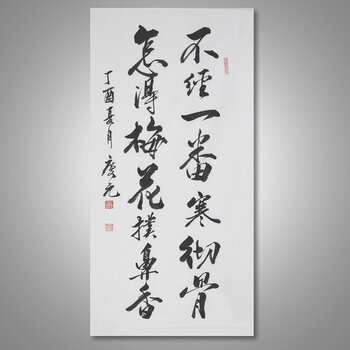 不經一番寒彻骨
怎得梅花撲鼻香
丁酉夏月 庆元